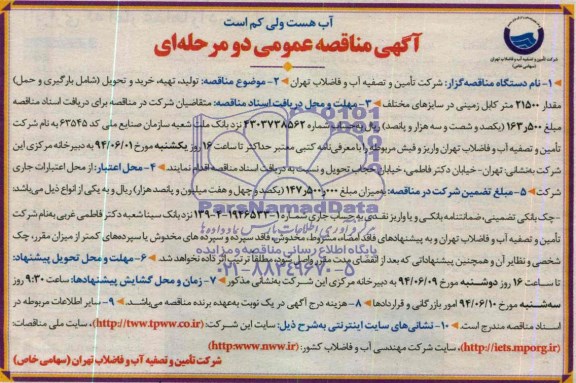 آب هست ولی کم است
آگهی مناقصه عمومی دو مرحله‌ای
شرکت تأمین و تصفیه آب و فاضلاب تهران
(سهامی خاص)
۱- نام دستگاه مناقصه‌گزار: شرکت تأمین و تصفیه آب و فاضلاب تهران ۲- موضوع مناقصه: تولید، تهیه، خرید و تحویل (شامل بارگیری و حمل)
مقدار ۲۱۵۰۰ متر کابل زمینی در سایزهای مختلف ۳- مهلت و محل دریافت اسناد مناقصه: متقاضیان شرکت در مناقصه برای دریافت اسناد مناقصه
مبلغ ۱۶۳٫۵۰۰ (یکصد و شصت و سه هزار و پانصد) ریال به شماره ۴۳۰۳۷۳۸۵۶۲ نزد بانک ملت شعبه سازمان صنایع ملی کد ۶۲۵۴۵ به نام شرکت
تأمین و تصفیه آب و فاضلاب تهران واریز و فیش مربوطه را با معرفی‌نامه کتبی معتبر حداکثر تا ساعت ۱۶ روز یکشنبه مورخ ۹۴/۰۶/۰۱ به دبیرخانه مرکزی این
شرکت به‌نشانی: تهران- خیابان دکتر فاطمی، خیابان حجاب تحویل و نسبت به دریافت اسناد مناقصه اقدام نمایند. ۴- محل اعتبار: از محل اعتبارات جاری
شرکت ۵- مبلغ تضمین شرکت در مناقصه: به‌میزان مبلغ ۱۴۷٫۵۰۰٫۰۰۰ (یکصد و چهل و هفت میلیون و پانصد هزار) ریال و به یکی از انواع ذیل می‌باشد
- چک بانکی تضمینی، ضمانتنامه بانکی و یا واریز نقدی به حساب جاری شماره ۱-۱۹۲۶۵۳۳-۴-۱۳۹ نزد بانک سینا شعبه دکتر فاطمی غربی به‌نام شرکت
تأمین و تصفیه آب و فاضلاب تهران و به پیشنهادهای فاقد امضاء، مشروط، مخدوش، فاقد سپرده و سپرده‌های مخدوش یا سپرده‌های کمتر از میزان مقرر، چک
شخصی و نظایر آن و همچنین پیشنهاداتی که بعد از انقضای مدت مقرر واصل شود، مطلقا ترتیب اثر داده نخواهد شد. ۶- مهلت و محل تحویل پیشنهاد:
تا ساعت ۱۶ روز دوشنبه مورخ ۹۴/۰۶/۰۹ به دبیرخانه مرکزی این شرکت به‌نشانی مذکور ۷- زمان و محل گشایش پیشنهادها: ساعت ۹:۳۰ روز
سه‌شنبه مورخ ۹۴/۰۶/۱۰ امور بازرگانی و قراردادها ۸- هزینه درج آگهی در یک نوبت به‌عهده برنده مناقصه می‌باشد. ۹- سایر اطلاعات مربوطه در
اسناد مناقصه مندرج است. ۱۰- نشانی‌های سایت اینترنتی به‌شرح ذیل: سایت این شرکت: (http://tww.tpww.co.ir)، سایت ملی مناقصات:
(http://iets.mporg.ir)، سایت شرکت مهندسی آب و فاضلاب کشور: (http:www.nww.ir)
شرکت تأمین و تصفیه آب و فاضلاب تهران (سهامی خاص)
ParsNamadData
پایگاه اطلاع رسانی مناقصه و مزایده
۰۲۱-۸۸۳۴۹۶۷۰-۵